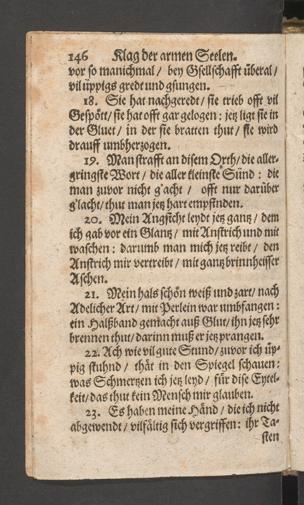 146 Klag der armen Seelen.
vor so manichmal / bey Gsellschafft überal /
vil üppigs gredt und gsungen.
18. Sie hat nachgeredt / sie trieb offt vil
Gespött / sie hat offt gar gelogen : jetz ligt sie in
der Gluet / in der sie bratten thut / sie wird
drauff umbherzogen.
19. Man strafft an disem Orth / die aller-
gringste Wort / die aller kleinste Sünd : die
man zuvor nicht g'acht / offt nur darüber
g'lacht / thut man jetz hart empfinden.
20. Mein Angsicht leydt jetz gantz / dem
ich gab vor ein Glantz / mit Anstrich und mit
waschen : darumb man mich jetz reibt / den
Anstrich mir vertreibt / mit gantz brinnheisser
Aschen.
21. Mein hals schön weiß und zart / nach
Adelicher Art / mit Perlein war umbfangen :
ein Halßband gemacht auß Glut / ihn jetz sehr
brennen thut / darinn muß er jetz prangen.
22. Ach wie vil gute Stund / zuvor ich üp-
pig stuhnd / thät in den Spiegel schauen :
was Schmertzen ich jetz leyd / für dise Eytel-
keit / das thut kein Mensch mir glauben.
23. Es haben meine Händ / die ich nicht
abgewendt / vilfältig sich vergriffen : ihr Ta-
sten